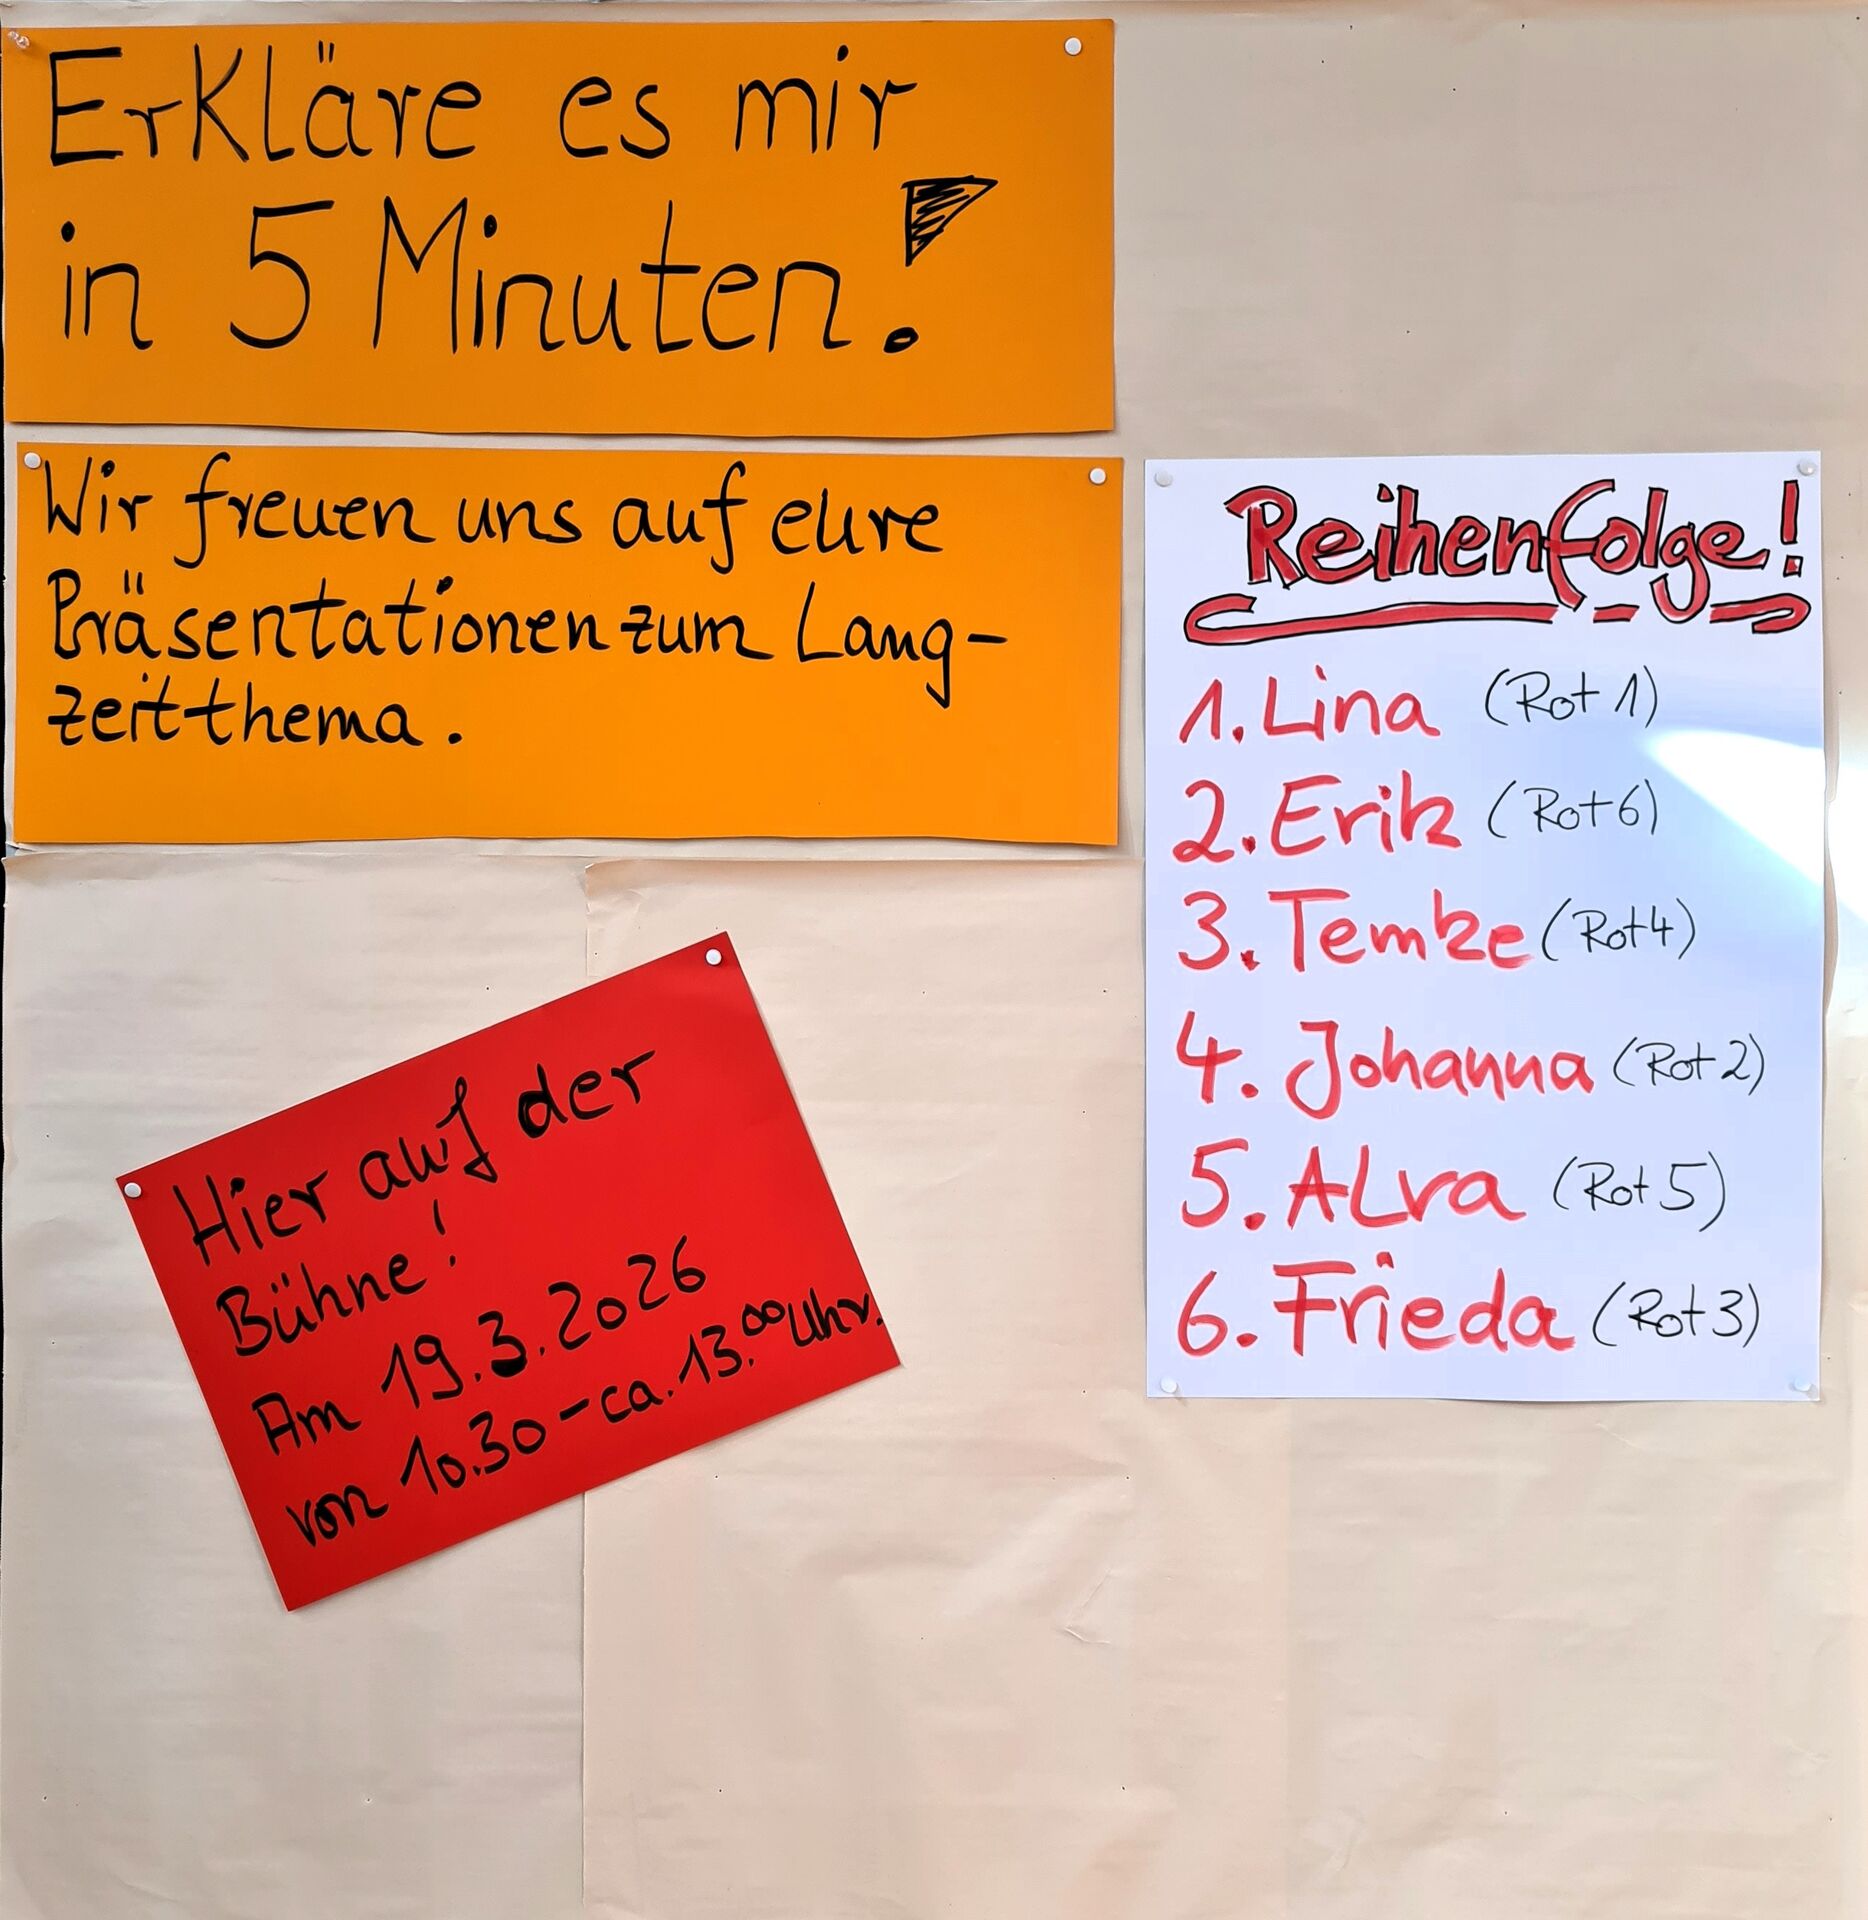 Erkläre es mir
in 5 Minuten!
Wir freuen uns auf eure
Präsentationen zum Lang-
zeitthema.
Hier auf der
Bühne!
Am 19.3.2026
von 10.30-ca.13.00 Uhr.
Reihenfolge!
1. Lina (Rot 1)
2. Erik (Rot 6)
3. Temke (Rot 4)
4. Johanna (Rot 2)
5. Alva (Rot 5)
6. Frieda (Rot 3)